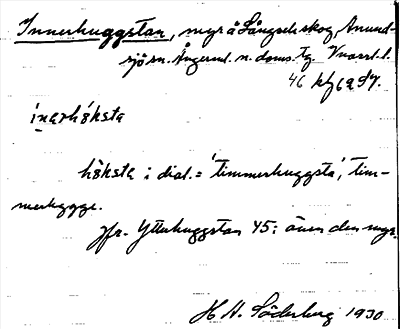 Innerhuggstan, myr å Långsele skog, Anund-
sjö sn. Ångerml. n. doms. tg. Vnorrl. l.
46
ínarhøksta
høksta i dial. = 'timmerhuggsta', tim-
merbygge.
Jfr. Ytterhuggstan 45; även den myr.
H. N. Söderberg 1930